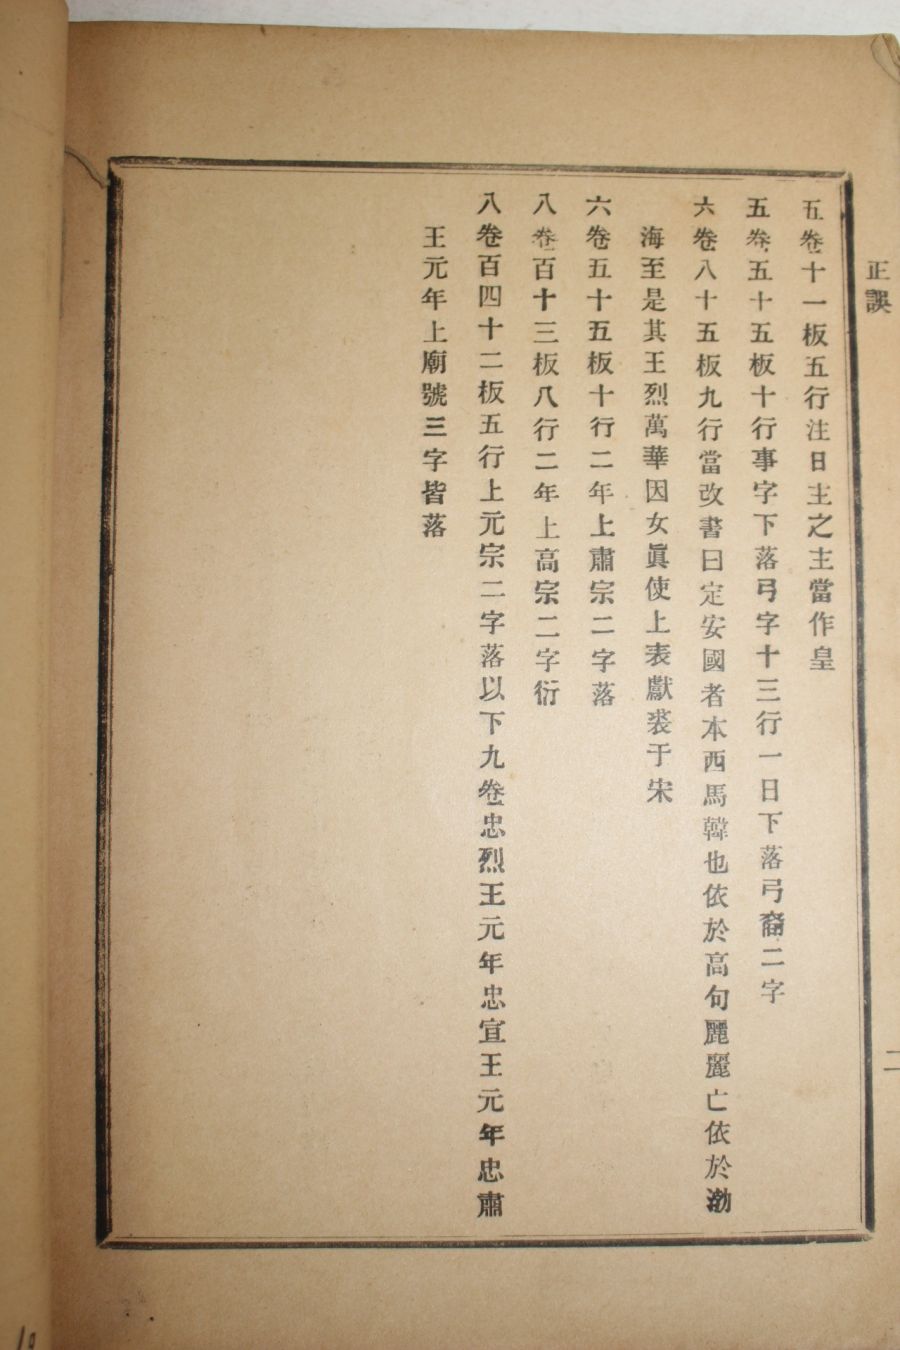 正誤
二
五卷十一板五行注日主之主當作皇
五卷五十五板十行事字下落弓字十三行一日下落弓裔二字
六卷八十五板九行當改書曰定安國者本西馬韓也依於高句麗麗亡依於渤
海至是其王烈萬華因女眞使上表獻裘于宋
六卷五十五板十行二年上肅宗二字落
八卷百十三板八行二年上高宗二字衍
八卷百四十二板五行上元宗二字落以下九卷忠烈王元年忠宣王元年忠肅
王元年上廟號三字皆落